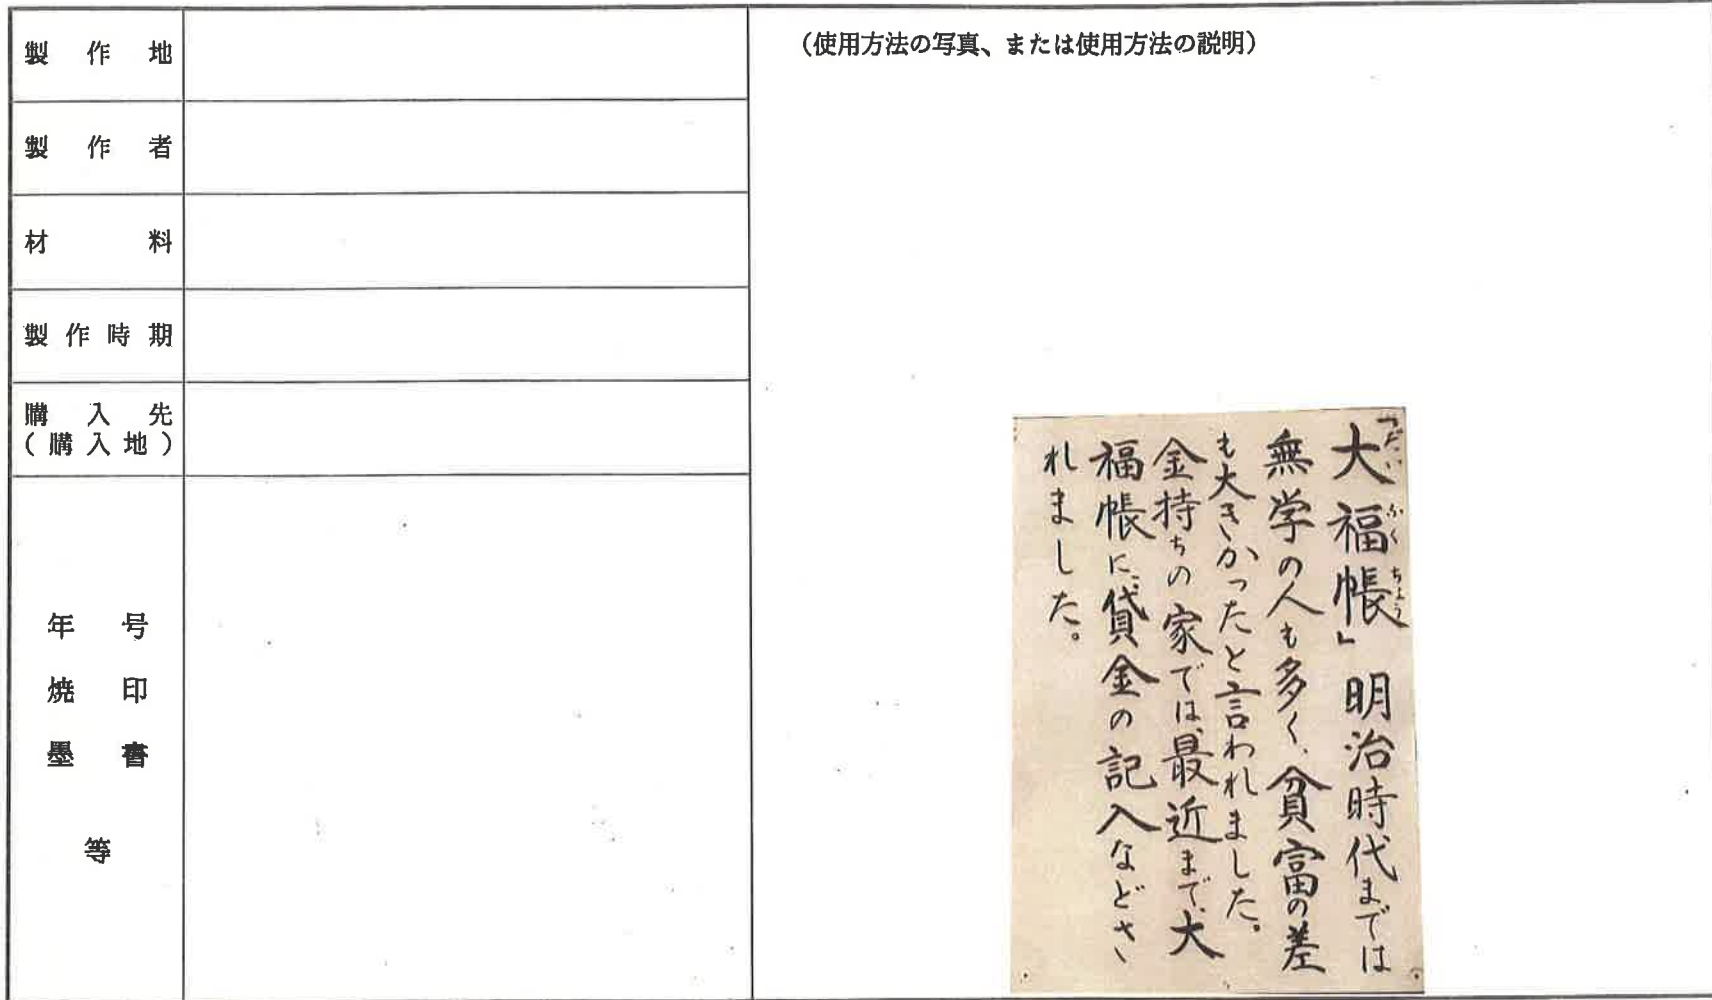 製作地
製作者
材料
製作時期
購入先
(購入地)
年号
焼印
墨書
等
(使用方法の写真、または使用方法の説明)
「大福帳」明治時代までは
だいふくちょう
無学の人も多く、貧富の差
も大きかったと言われました。
金持ちの家では、最近まで、大
福帳に、貸金の記入などさ
れました。